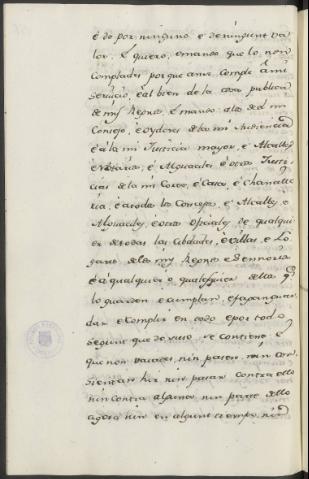 é do por ninguno é de ningunt va
lor. É quiero, é mando que lo non
complades porque ansi cumple á mi
servicio, é al bien de la cosa publica
de mis Regnos. É mando á los del mi
Consejo, é Oydores de la mi Audiencia
é á la mi Justicia mayor, é Alcaldes
é Notarios, é Alguaciles é otras Justi
cias de la mi Corte, é Casa, é Chancille
ria, é á todos los Concejos, é Alcaldes, é
Alguaciles, é otros Oficiales de qualqui
er de todas las Cibdades, é Villas, é Lo
gares de los mis Regnos é Sennorios
é á qualquier ó qualesquier dellos q.
lo guarden é cumplan é fagan guar
dar é complir en todo é por todo
segunt que de suso se contiene, é
que non vayan, nin pasen, nin con
sientan ir nin pasar contra ello
nin contra alguna nin parte dello
agora nin en algunt tiempo, nin